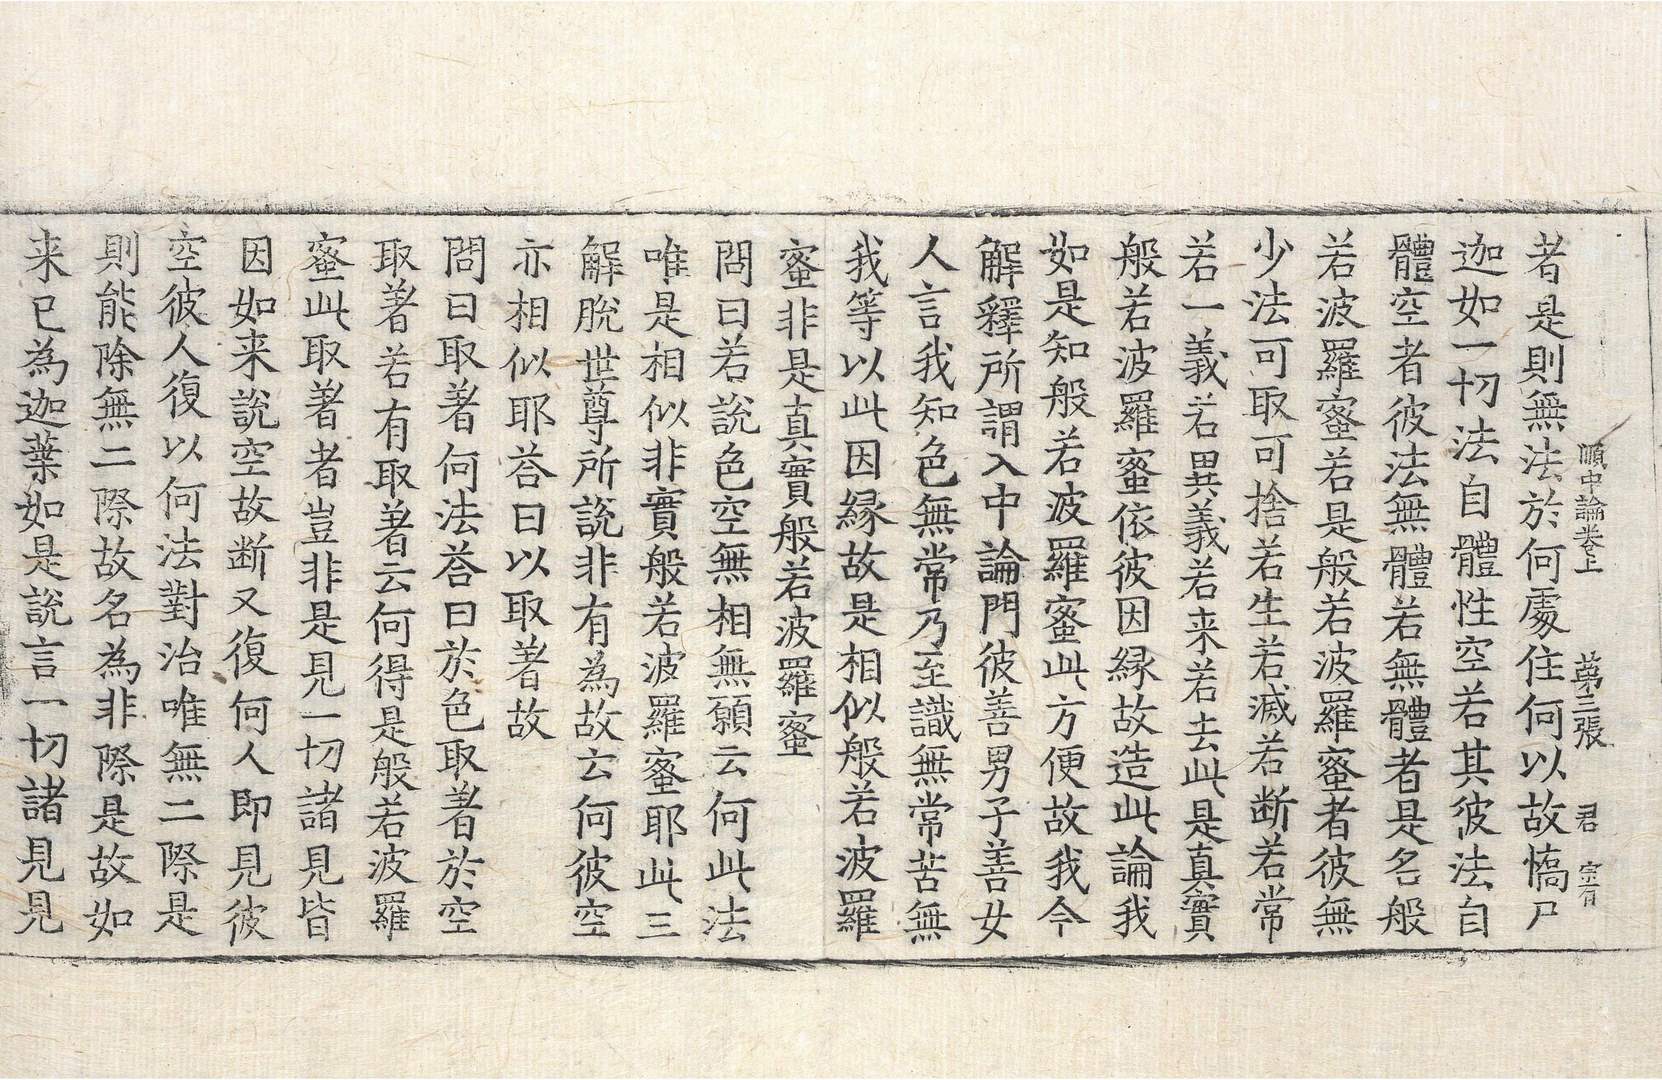 順中論卷上 第三張 君 宗有
者是則無法於何處住何以故憍尸
迦如一切法自體性空若其彼法自
體空者彼法無體若無體者是名般
若波羅蜜若是般若波羅蜜者彼無
少法可取可捨若生若滅若断若常
若一義若異義若来若去此是真實
般若波羅蜜依彼因縁故造此論我
如是知般若波羅蜜此方便故我今
解釋所謂入中論門彼善男子善女
人言我知色無常乃至識無常苦無
我等以此因縁故是相似般若波羅
蜜非是真實般若波羅蜜
問曰若說色空無相無願云何此法
唯是相似非實般若波羅蜜耶此三
解脫世尊所說非有為故云何彼空
亦相似耶荅曰以取著故
問曰取著何法荅曰於色取著於空
取著若有取著云何得是般若波羅
蜜此取著者豈非是見一切諸見皆
因如来說空故断又復何人即見彼
空彼人復以何法對治唯無二際是
則能除無二際故名為非際是故如
来已為迦葉如是說言一切諸見見